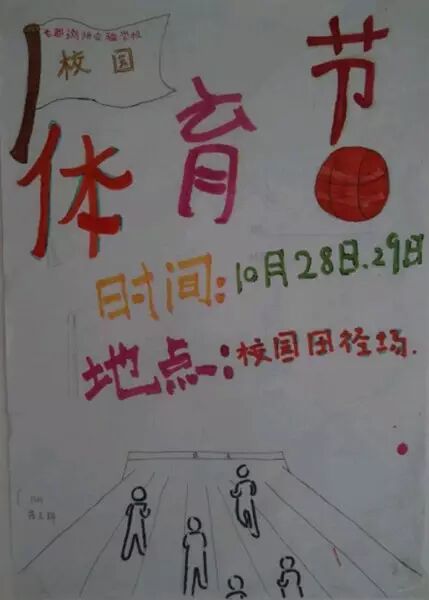 实验学校
校园
体育节
时间:10月28日.29日
地点:校园田径场.